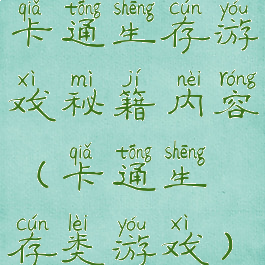 qiǎ tōng shēng cún yóu
卡通生存游
xì mì jí nèi róng
戏秘籍内容
qiǎ tōng shēng
（卡通生
cún lèi yóu xì
存类游戏）